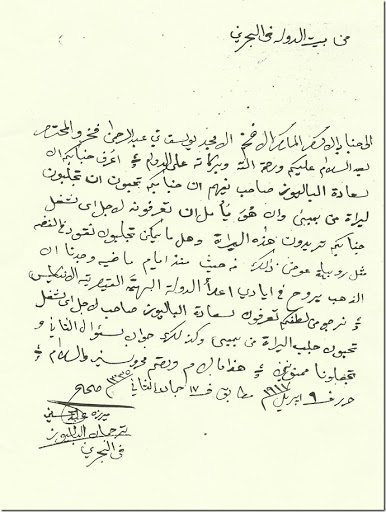 من بيت الدولة في البحرين
الى جناب الاكرم الافخم الامجد يوسف بن عبدالرحمن فخرو المحترم
بعد السلام عليكم ورحمة الله وبركاته على الدوام اعرف جنابكم ان
لسعادة الباليوز صاحب يفهم ان جنابكم تحبون ان تجلبون
ليرات من بمبي وان هو يأمل ان تعرفونه لاجل اي شغل
جنابكم تريدون هذه الليرات وهل ما يمكن تجلبون نقود الفضه
مثل روبية عوض ذلك حيث منذ ايام ماضيه وجدنا ان
الذهب يروح في ايادي اعداء الدولة البهية القيصرية الانكليس
نرجو من لطفكم تعرفون لسعادة الباليوز صاحب لاجل اي شغل
تحبون جلب الليرات من بمبي وكذلك جواب لسؤال الثاني و
تجعلونا ممنونين هذا ما لزم ودمتم محروسين والسلام
حرر في ٩ ابريل ١٩١٧ مطابق في ١٧ جمادى الثاني ١٣٣٥ صحيح
ترجمان الباليوز
في البحرين